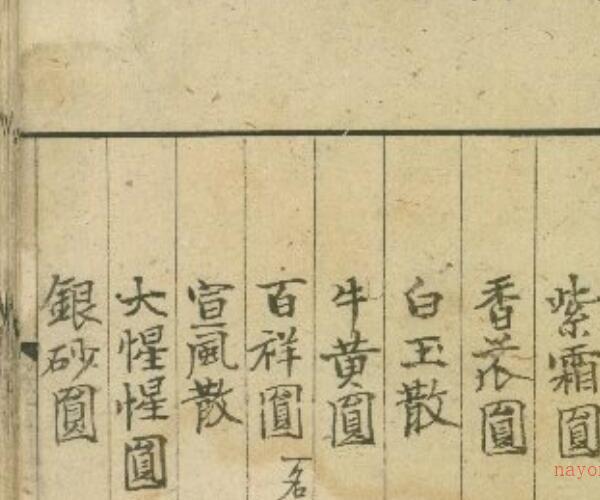 紫霜圓
香莀圓
白玉散
牛黃圓
百祥圓 一名
宣風散
大惺惺圓
銀砂圓
nayo